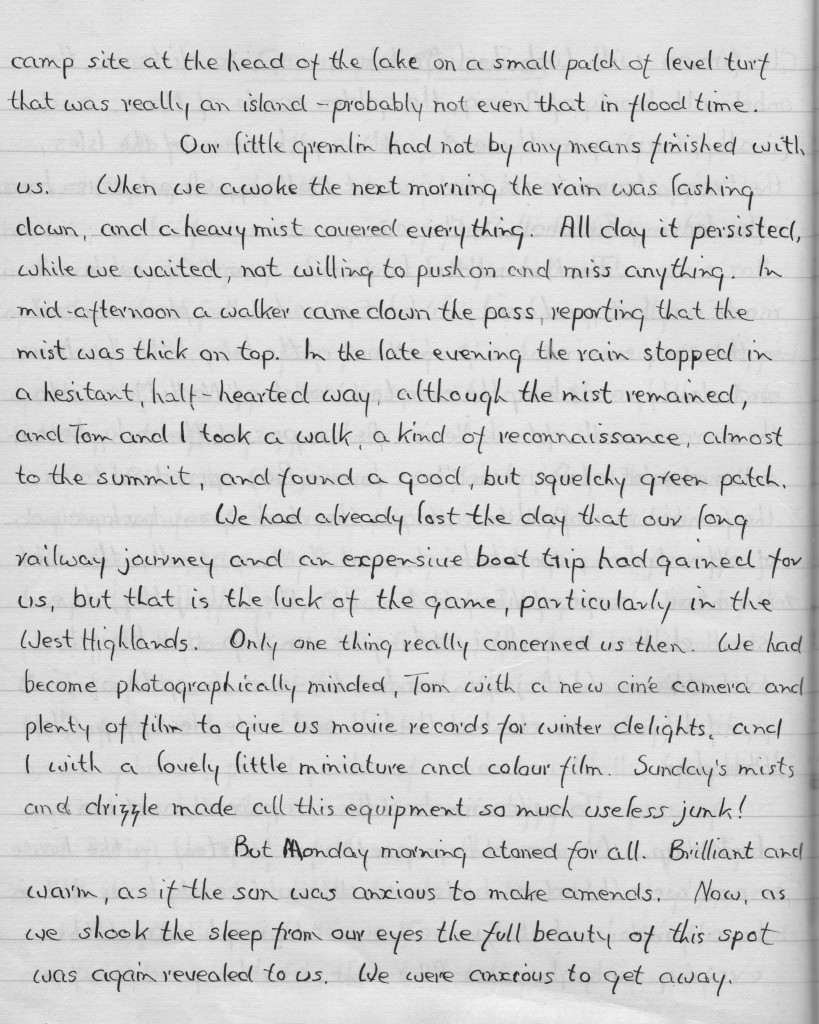 camp site at the head of the lake on a small patch of level turf
that was really an island - probably not even that in flood time.
Our little gremlin had not by any means finished with
us. When we awoke the next morning the rain was lashing
down, and a heavy mist covered everything. All day it persisted,
while we waited, not willing to push on and miss anything. In
mid-afternoon a walker came down the pass, reporting that the
mist was thick on top. In the late evening the rain stopped in
a hesitant, half-hearted way, although the mist remained,
and Tom and I took a walk, a kind of reconnaissance, almost
to the summit, and found a good, but squelchy green patch.
We had already lost the day that our long
railway journey and an expensive boat trip had gained for
us, but that is the luck of the game, particularly in the
West Highlands. Only one thing really concerned us then. We had
become photographically minded, Tom with a new ciné camera and
plenty of film to give us movie records for winter delights, and
I with a lovely little miniature and colour film. Sunday's mists
and drizzle made all this equipment so much useless junk!
But Monday morning atoned for all. Brilliant and
warm, as if the sun was anxious to make amends. Now, as
we shook the sleep from our eyes the full beauty of this spot
was again revealed to us. We were anxious to get away.